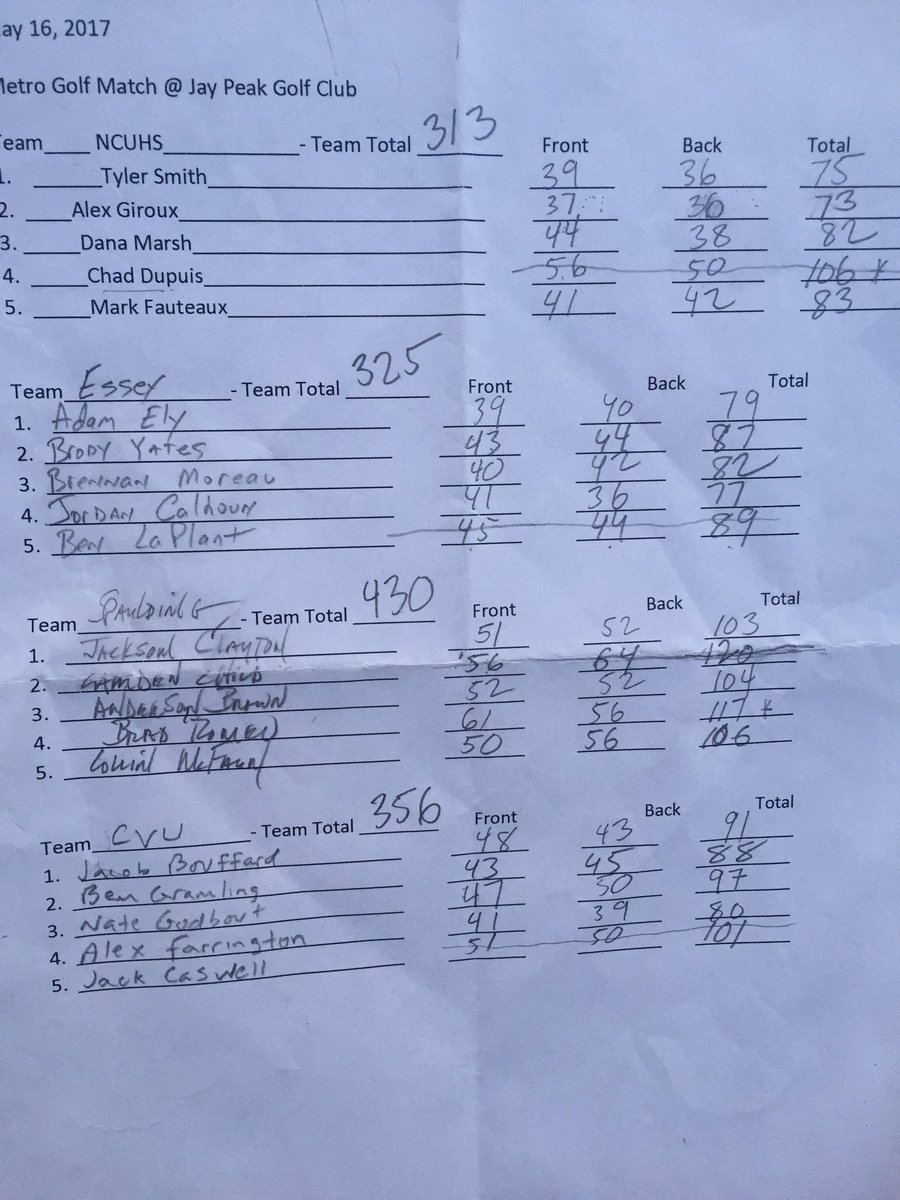 ay 16, 2017
Metro Golf Match @ Jay Peak Golf Club
Team____ NCUHS____________- Team Total 313 Front Back Total
1. ______Tyler Smith 39 36 75
2. ____Alex Giroux 37 36 73
3. _____Dana Marsh 44 38 82
4. _____Chad Dupuis 56 50 106 *
5. _____Mark Fauteaux 41 42 83
Team Essex - Team Total 325 Front Back Total
1. Adam Ely 39 40 79
2. Brody Yates 43 44 87
3. Brennan Moreau 40 42 82
4. Jordan Calhoun 41 36 77
5. Ben LaPlant 45 44 89
Team Spaulding - Team Total 430 Front Back Total
1. Jackson Clayton 51 52 103
2. Camden Child 56 64 120
3. Anderson Brown 52 52 104
4. Brad Romeo 61 56 117 *
5. Collin McFaun 50 56 106
Team CVU - Team Total 356 Front Back Total
1. Jacob Bouffard 48 43 91
2. Ben Gramling 43 45 88
3. Nate Godbout 47 50 97
4. Alex Farrington 41 39 80
5. Jack Caswell 51 50 101